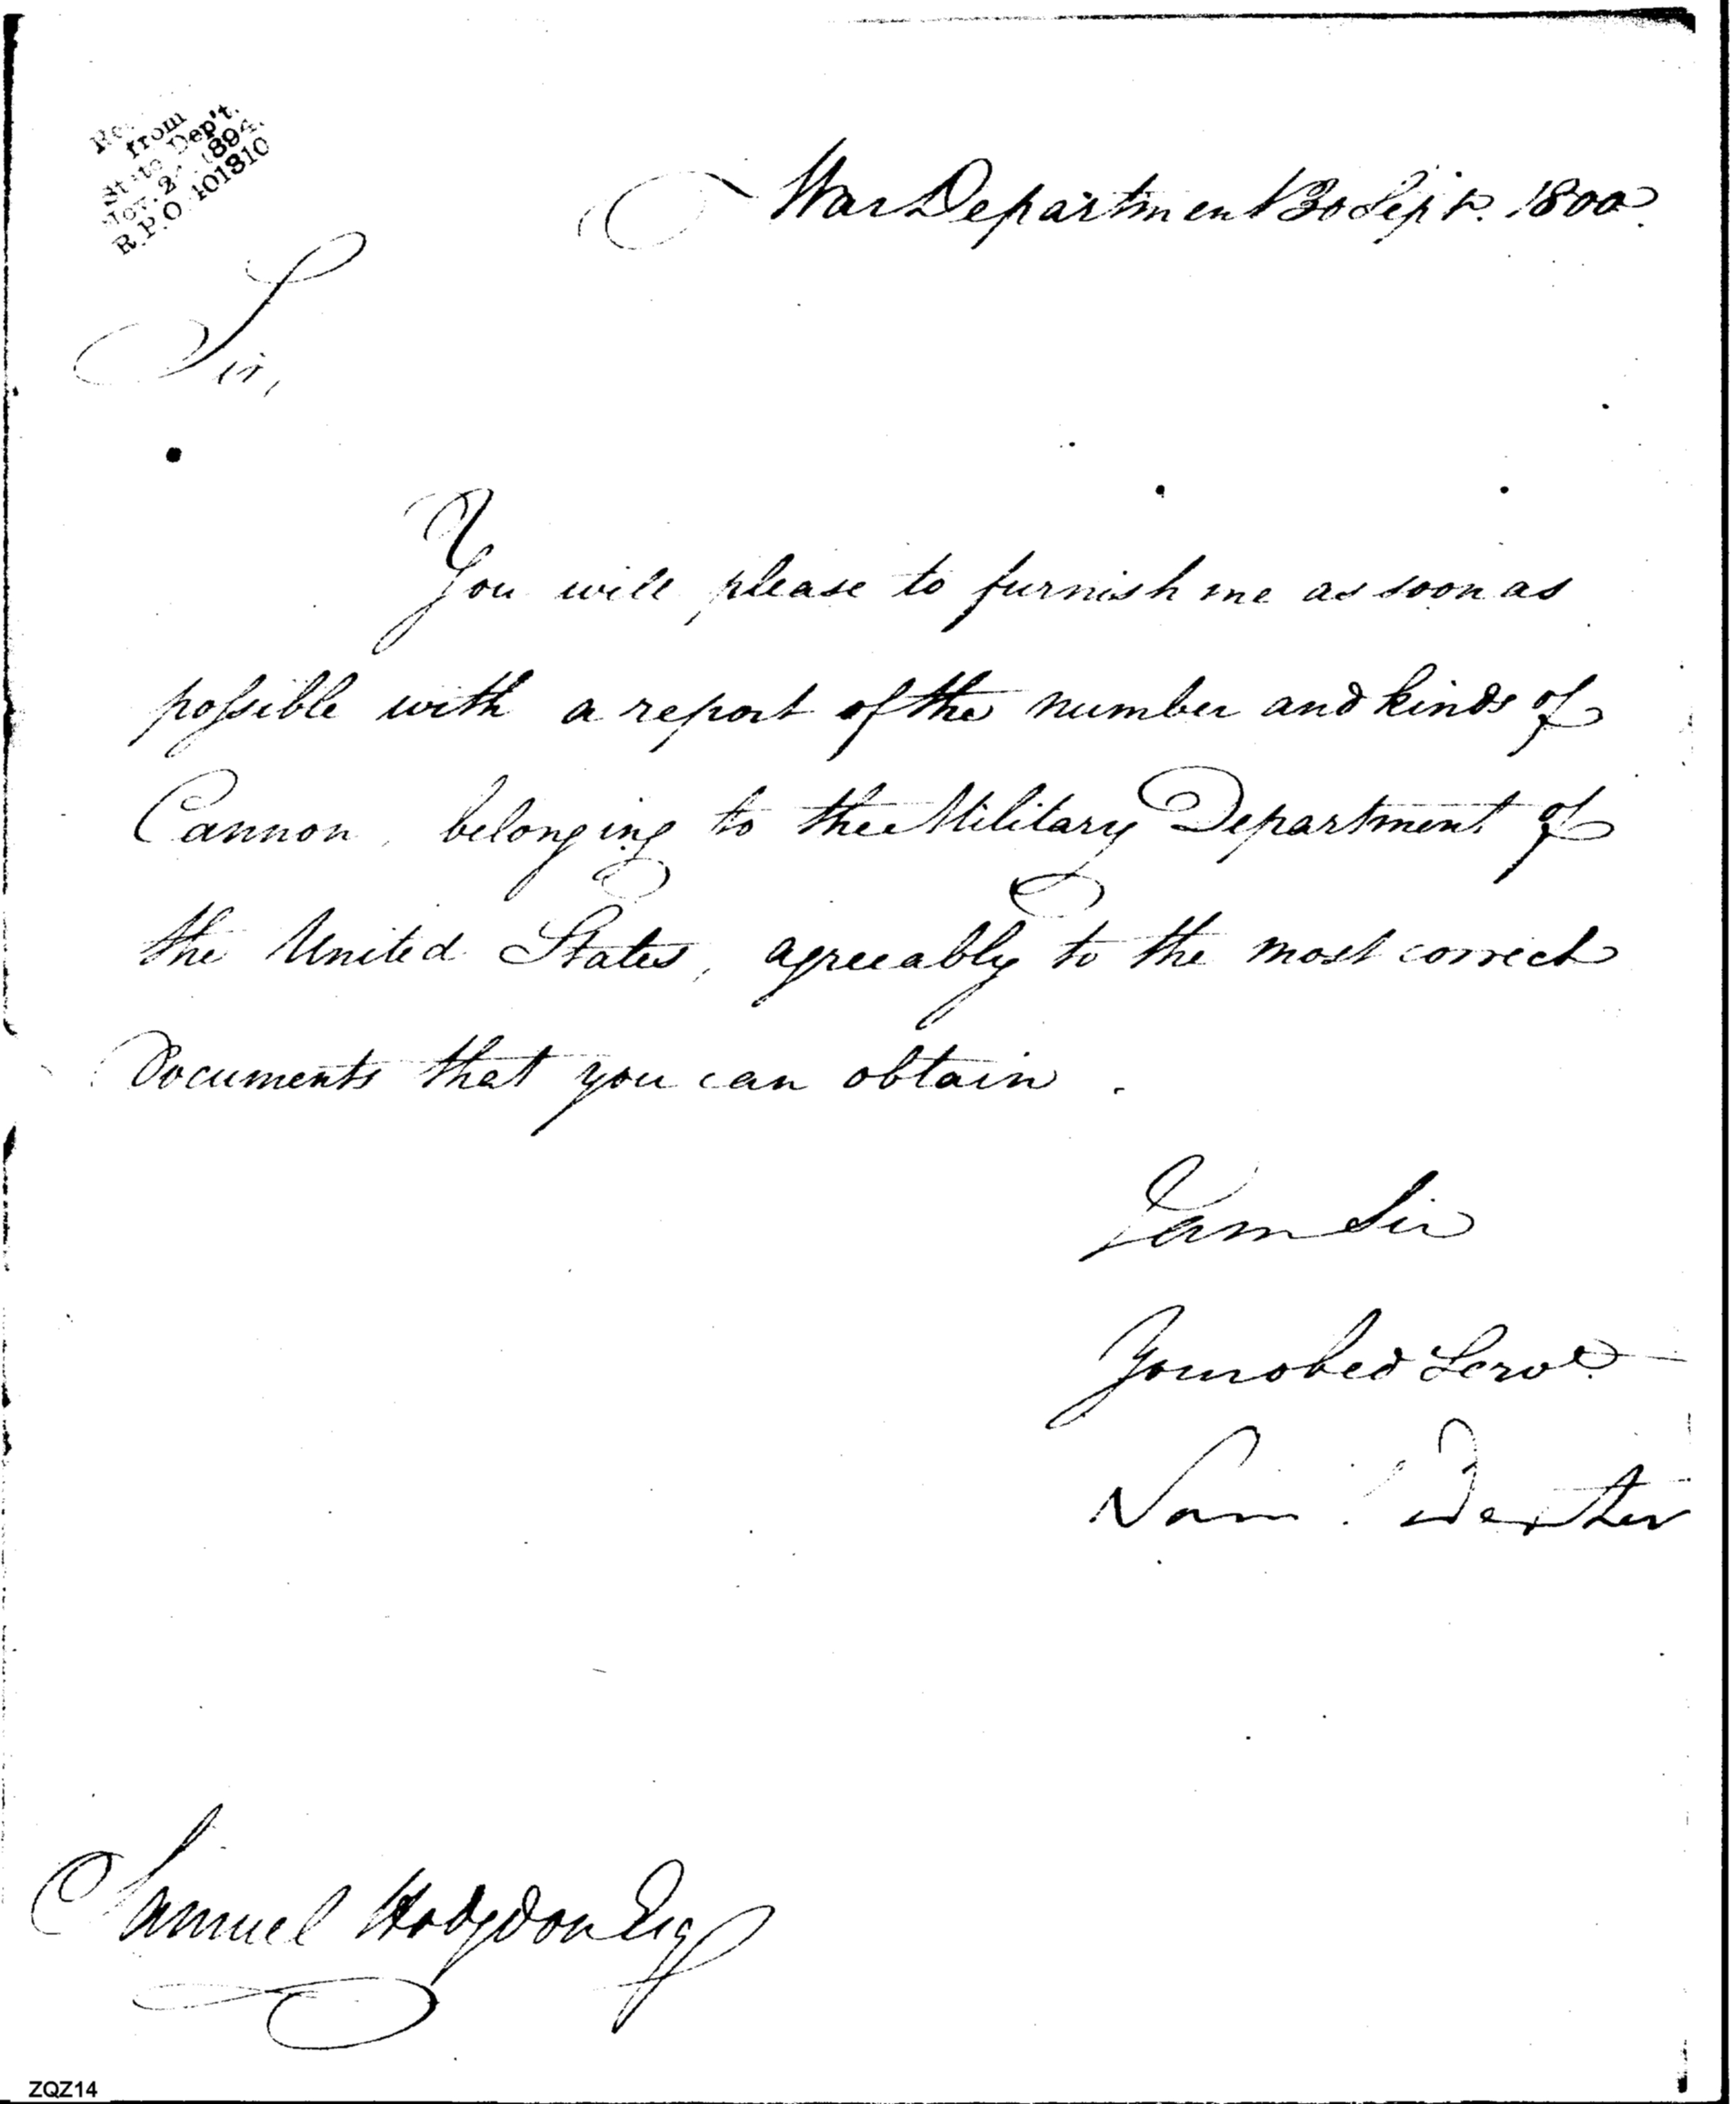 from
State Dep't.
Nov. 2 1894.
R.P.O. 401310
War Department 30 Sept. 1800.
Sir,
You will please to furnish me as soon as
possible with a report of the number and kinds of
Cannon, belonging to the Military Department of
the United States, agreeably to the most correct
Documents that you can obtain.
I am Sir
Your obed Servt.
Saml. Dexter
Samuel Hodgdon Esq
ZQZ14